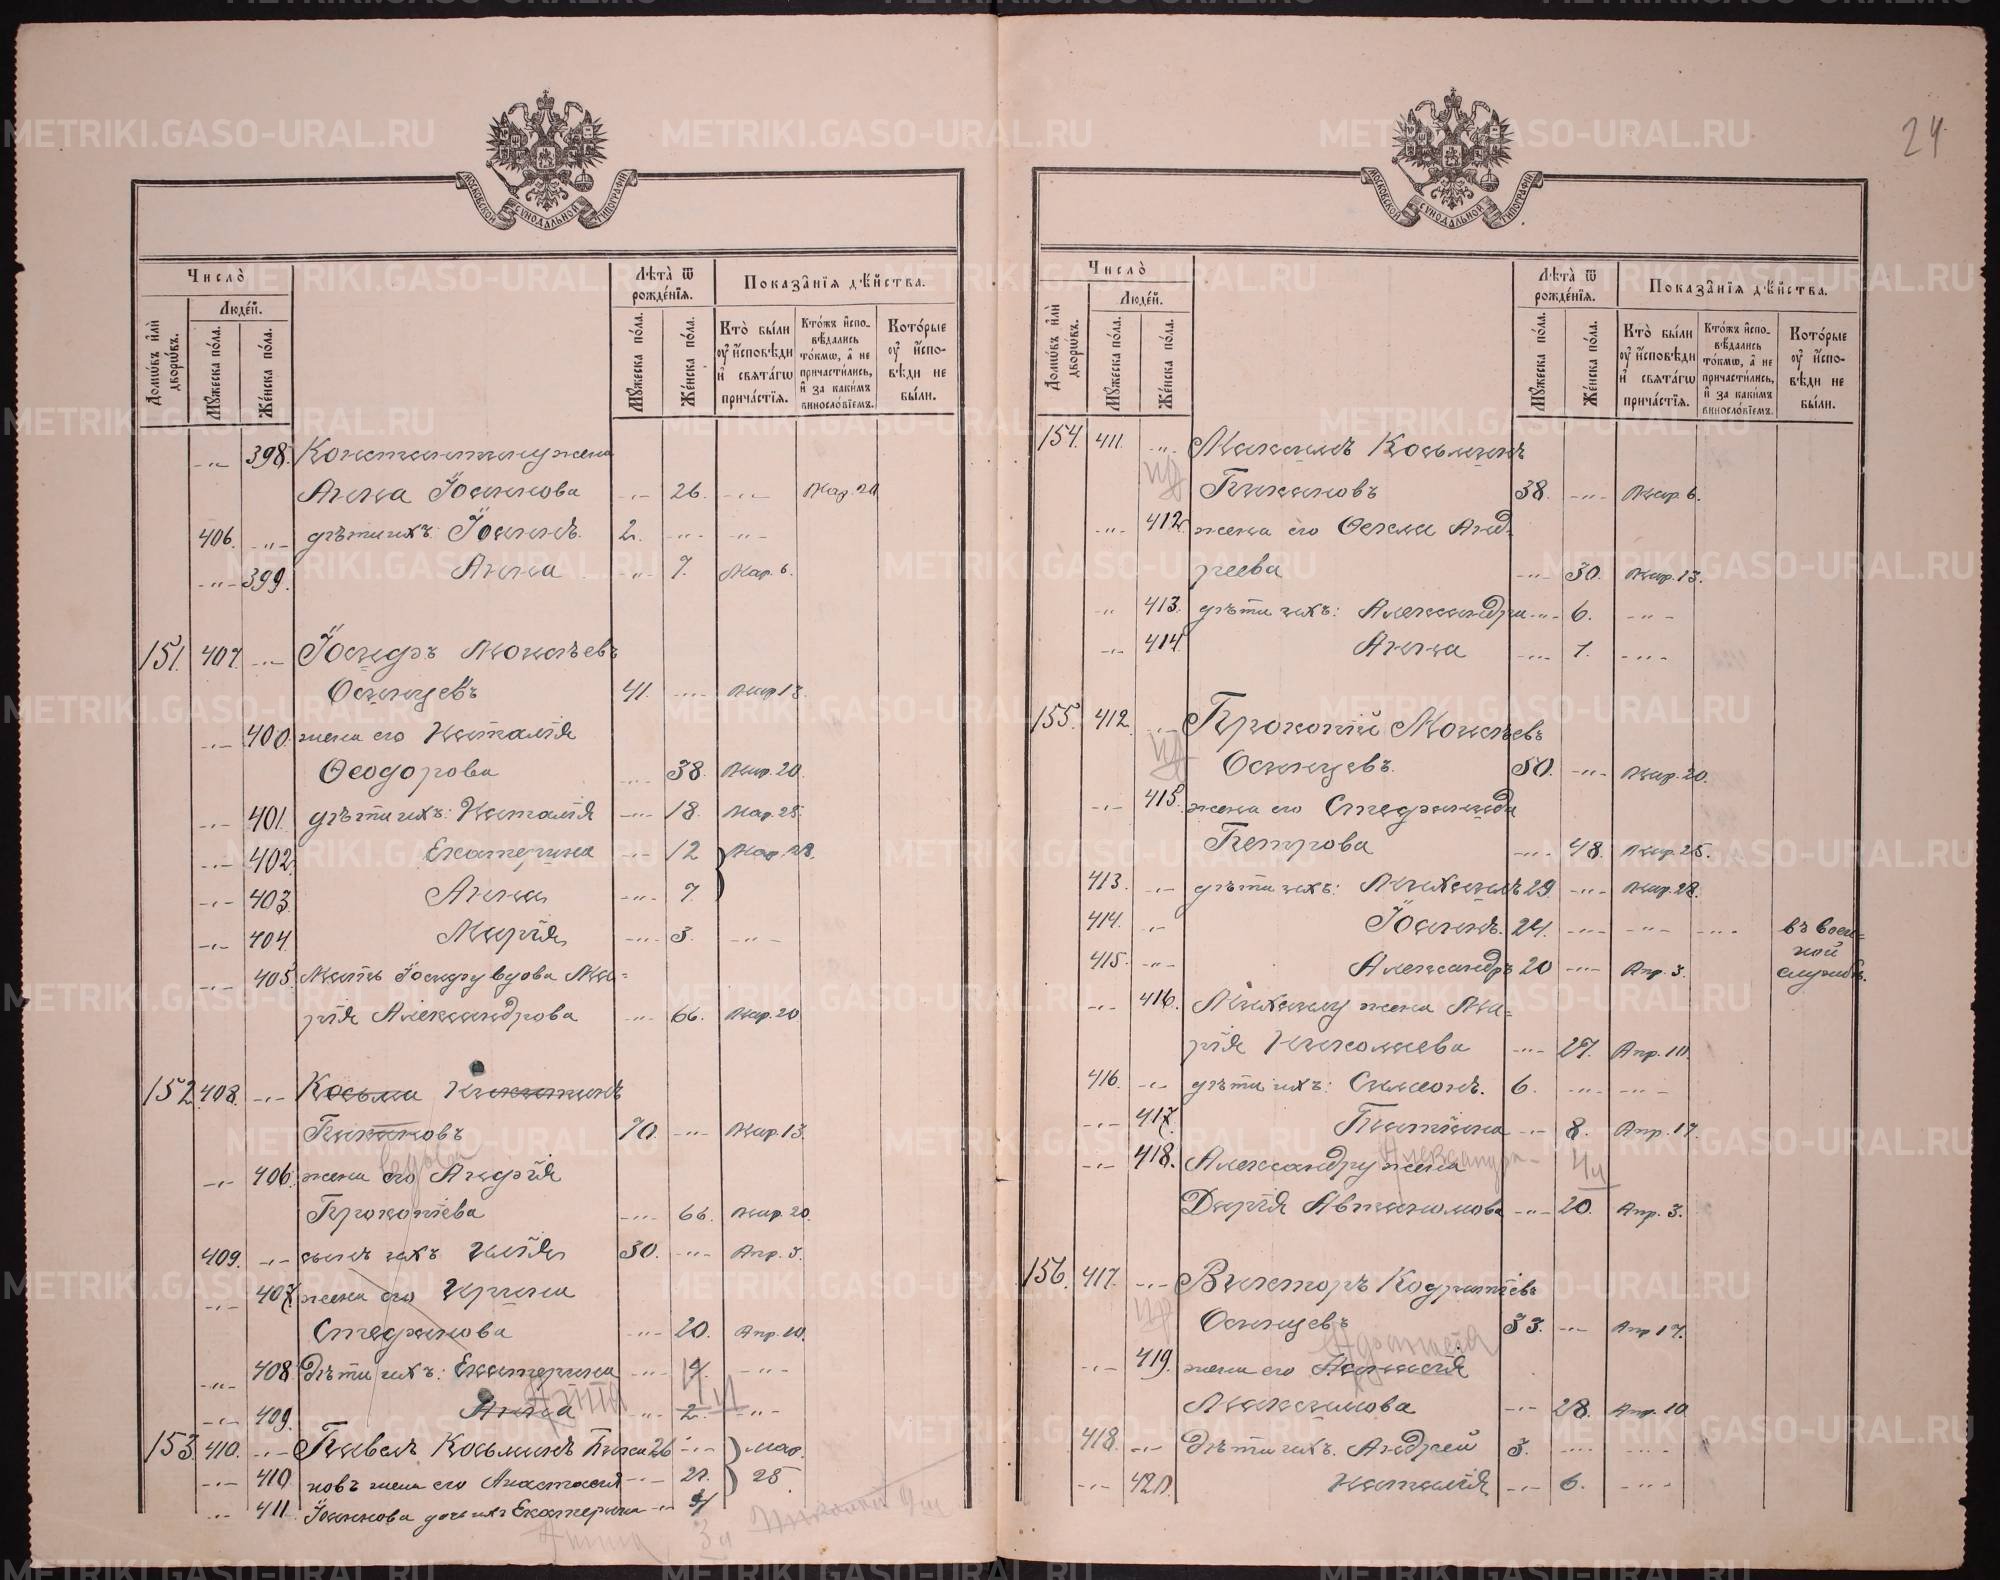 24
МОСКОВСКОЙ СѴНОДАЛЬНОЙ ТИПОГРАФІИ
Число̀
Людей.
Домѡвъ и҆лѝ дворѡвъ.
Мꙋжеска по́ла.
Же́нска по́ла.
Лѣта̀ ѿ рожде́нїѧ.
Мꙋжеска по́ла.
Же́нска по́ла.
Показа̂нїѧ дѣ́йства.
Кто̀ бы́ли оу҆ и҆сповѣди и҆ свѧта́гѡ прича́стїѧ.
Кто́жъ и҆спо-вѣдались то́кмѡ, а҆ не причасти́лись, и҆ за каки́мъ виносло́вїемъ.
Кото́рые оу҆ и҆спо-вѣди не бы́ли.
-„- 398. Константину жена
Анна Іоаннова -„- 26. -„- Мар. 20
406. -„- дѣти ихъ: Іоаннъ. 2. -„- -„-
-„- 399. Анна -„- 7. Мар. 6.
151. 407. -„- Іосифъ Моисѣевъ
Осинцевъ 41. -„- Мар. 13.
-„- 400. жена его Наталія
Ѳеодорова -„- 38. Мар. 20.
-„- 401. дѣти ихъ: Наталія -„- 18. Мар. 25.
-„- 402. Екатерина -„- 12 Мар. 28.
-„- 403. Анна -„- 7.
-„- 404. Марія -„- 3. -„-
-„- 405. Мать Іосифу вдова Ма-
рія Александрова -„- 66. Мар. 20
152. 408. -„- Косьма Никитинъ
Пькановъ 70. -„- Мар. 13.
вдова
-„- 406. жена его Агафія
Прокопіева -„- 66. Мар. 20.
409. -„- сынъ ихъ Илія 30. -„- Апр. 3.
-„- 407. жена его Ирина
Стефанова -„- 20. Апр. 10.
-„- 408. Дѣти ихъ: Екатерина -„- 4. -„-
-„- 409. Анна -„- 2. -„-
153. 410. -„- Павелъ Косьминъ 26 -„- Мар.
-„- 410 новъ жена его Анастасія -„- 21. 25.
-„- 411. Іоаннова дочь ихъ Екатерина -„-
Анна 3 м
Число̀
Людей.
Домѡвъ и҆лѝ дворѡвъ.
Мꙋжеска по́ла.
Же́нска по́ла.
Лѣта̀ ѿ рожде́нїѧ.
Мꙋжеска по́ла.
Же́нска по́ла.
Показа̂нїѧ дѣ́йства.
Кто̀ бы́ли оу҆ и҆сповѣди и҆ свѧта́гѡ прича́стїѧ.
Кто́жъ и҆спо-вѣдались то́кмѡ, а҆ не причасти́лись, и҆ за каки́мъ винослов́їемъ.
Кото́рые оу҆ и҆спо-вѣди не бы́ли.
154. 411. -„- Максимъ Косьминъ
38. -„- Мар. 6.
-„- 412. жена его Ѳекла Анд-
реева -„- 30. Мар. 13.
-„- 413. дѣти ихъ: Александра -„- 6. -„-
-„- 414. Анна -„- 1. -„-
155. 412. -„- Прокопій Моисѣевъ
Осинцевъ. 50. -„- Мар. 20.
-„- 415. жена его Стефанида
Петрова -„- 48. Мар. 25.
413. -„- дѣти ихъ: Михаилъ 29. -„- Мар. 28.
414. -„- Іоаннъ. 24. -„- -„- -„- въ воен-
ной
415. -„- Александръ 20 -„- Апр. 3. службѣ.
-„- 416. Михаилу жена Ма-
рія Николаева -„- 27. Апр. 10.
416. -„- дѣти ихъ: Симонъ. 6. -„- -„-
-„- 417. -„- 8. Апр. 17.
Александра 4 м
-„- 418. Александру жена
Дарія Автономова -„- 20. Апр. 3.
156. 417. -„- Викторъ Кодратіевъ
Осинцевъ 33. -„- Апр. 17.
-„- 419. жена его
Максимова -„- 28. Апр. 10
418. -„- Дѣти ихъ. Андрей 3. -„- -„-
-„- 420. Наталія -„- 6. -„-
METRIKI.GASO-URAL.RU